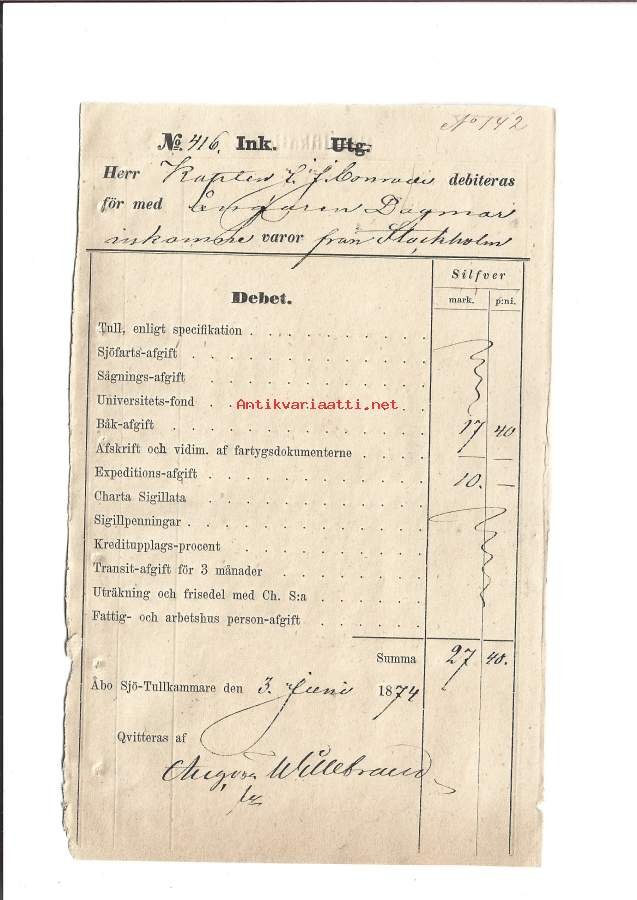 No 142
No. 416. Ink. Utg.
Herr Kapten J. Conradi debiteras
för med Ångaren Dagmar
inkomne varor från Stockholm
Silfver
Debet. mark. p:ni.
Tull, enligt specifikation
Sjöfarts-afgift
Sågnings-afgift
Universitets-fond
Antikvariaatti.net
Båk-afgift 17 40
Afskrift och vidim. af fartygsdokumenterne — —
Expeditions-afgift 10. —
Charta Sigillata
Sigillpenningar
Kreditupplags-procent
Transit-afgift för 3 månader
Uträkning och frisedel med Ch. S:a
Fattig- och arbetshus person-afgift
Summa 27 40.
Åbo Sjö-Tullkammare den 3. Juni 1874
Qvitteras af
August Willebrand